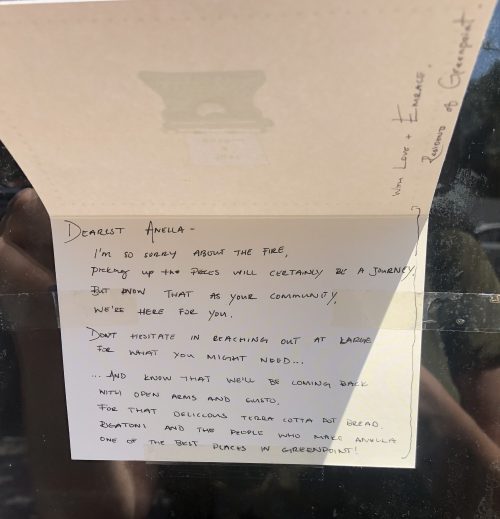 Dearest Anella -
I'm so sorry about the fire,
picking up the pieces will certainly be a journey
But know that as your community,
we're here for you.
Don't hesitate in reaching out at large
for what you might need...
... And know that we'll be coming back
with open arms and gusto.
For that delicious terra cotta pot bread,
rigatoni and the people who make Anella
one of the best places in Greenpoint!
With Love + Embrace.
Resident of Greenpoint.